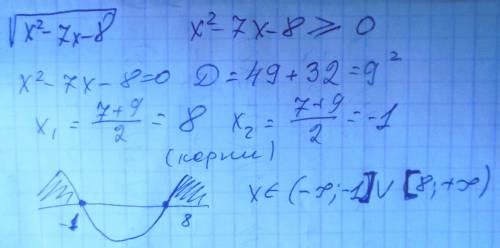 √x²-7x-8 x²-7x-8 ⩾ 0
x²-7x-8=0 D=49+32=9²
x₁ = (7+9)/2 = 8 x₂ = (7+9)/2 = -1
(корни)
-1 8 x∈(-∞;-1]∪[8;+∞)